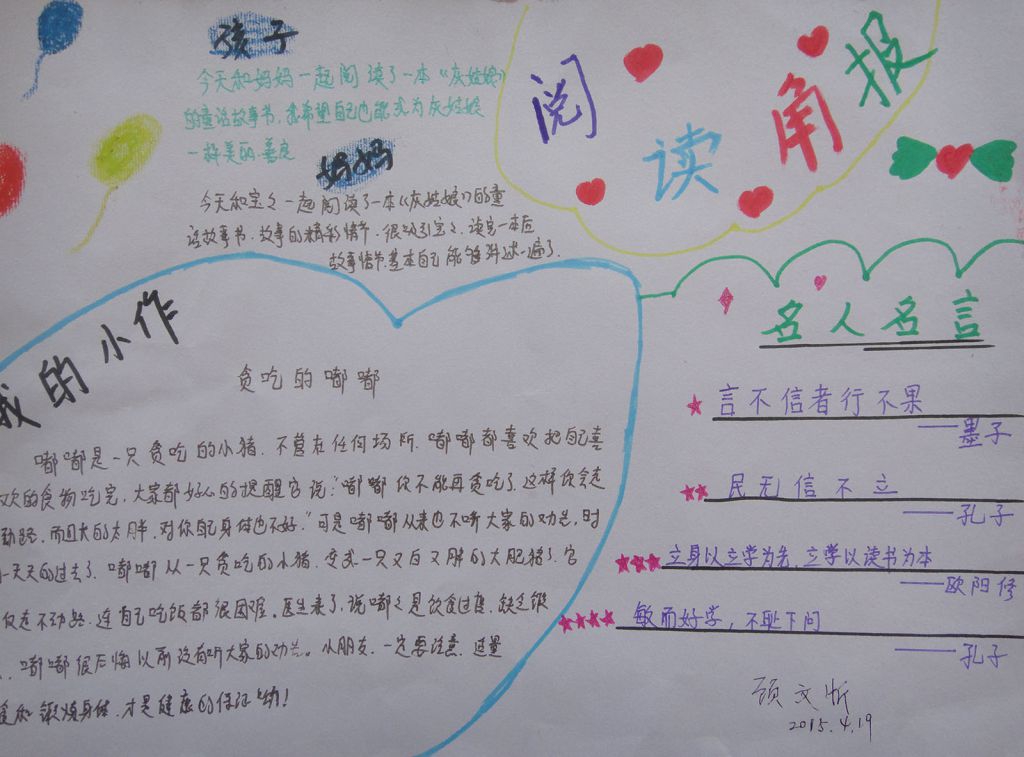 阅读角报
孩子
今天和妈妈一起阅读了一本《灰姑娘》
的童话故事书,我希望自己也能成为灰姑娘
一样美丽、善良
妈妈
今天和宝々一起阅读了一本《灰姑娘》的童
话故事书,故事的精彩情节,很吸引宝々,读完一本后
故事情节基本自己能够讲述一遍了.
我的小作
贪吃的嘟嘟
嘟嘟是一只贪吃的小猪,不管在任何场所,嘟嘟都喜欢把自己喜
欢的食物吃完,大家都好心的提醒它说:"嘟嘟你不能再贪吃了,这样你会走
动路,而且大的太胖,对你的身体也不好."可是嘟嘟从来也不听大家的劝告,时
一天天的过去了,嘟嘟从一只贪吃的小猪,变成一只又白又胖的大肥猪了.它
仅走不动路,连自己吃饭都很困难,医生来了,说嘟々是饮食过度,缺乏锻
嘟嘟很后悔以前没有听大家的劝告。小朋友,一定要注意,适量
食和锻炼身体,才是健康的保证哟!
名人名言
言不信者行不果
——墨子
民无信不立
——孔子
立身以立学为先,立学以读书为本
——欧阳修
敏而好学,不耻下问
——孔子
顾文昕
2015.4.19